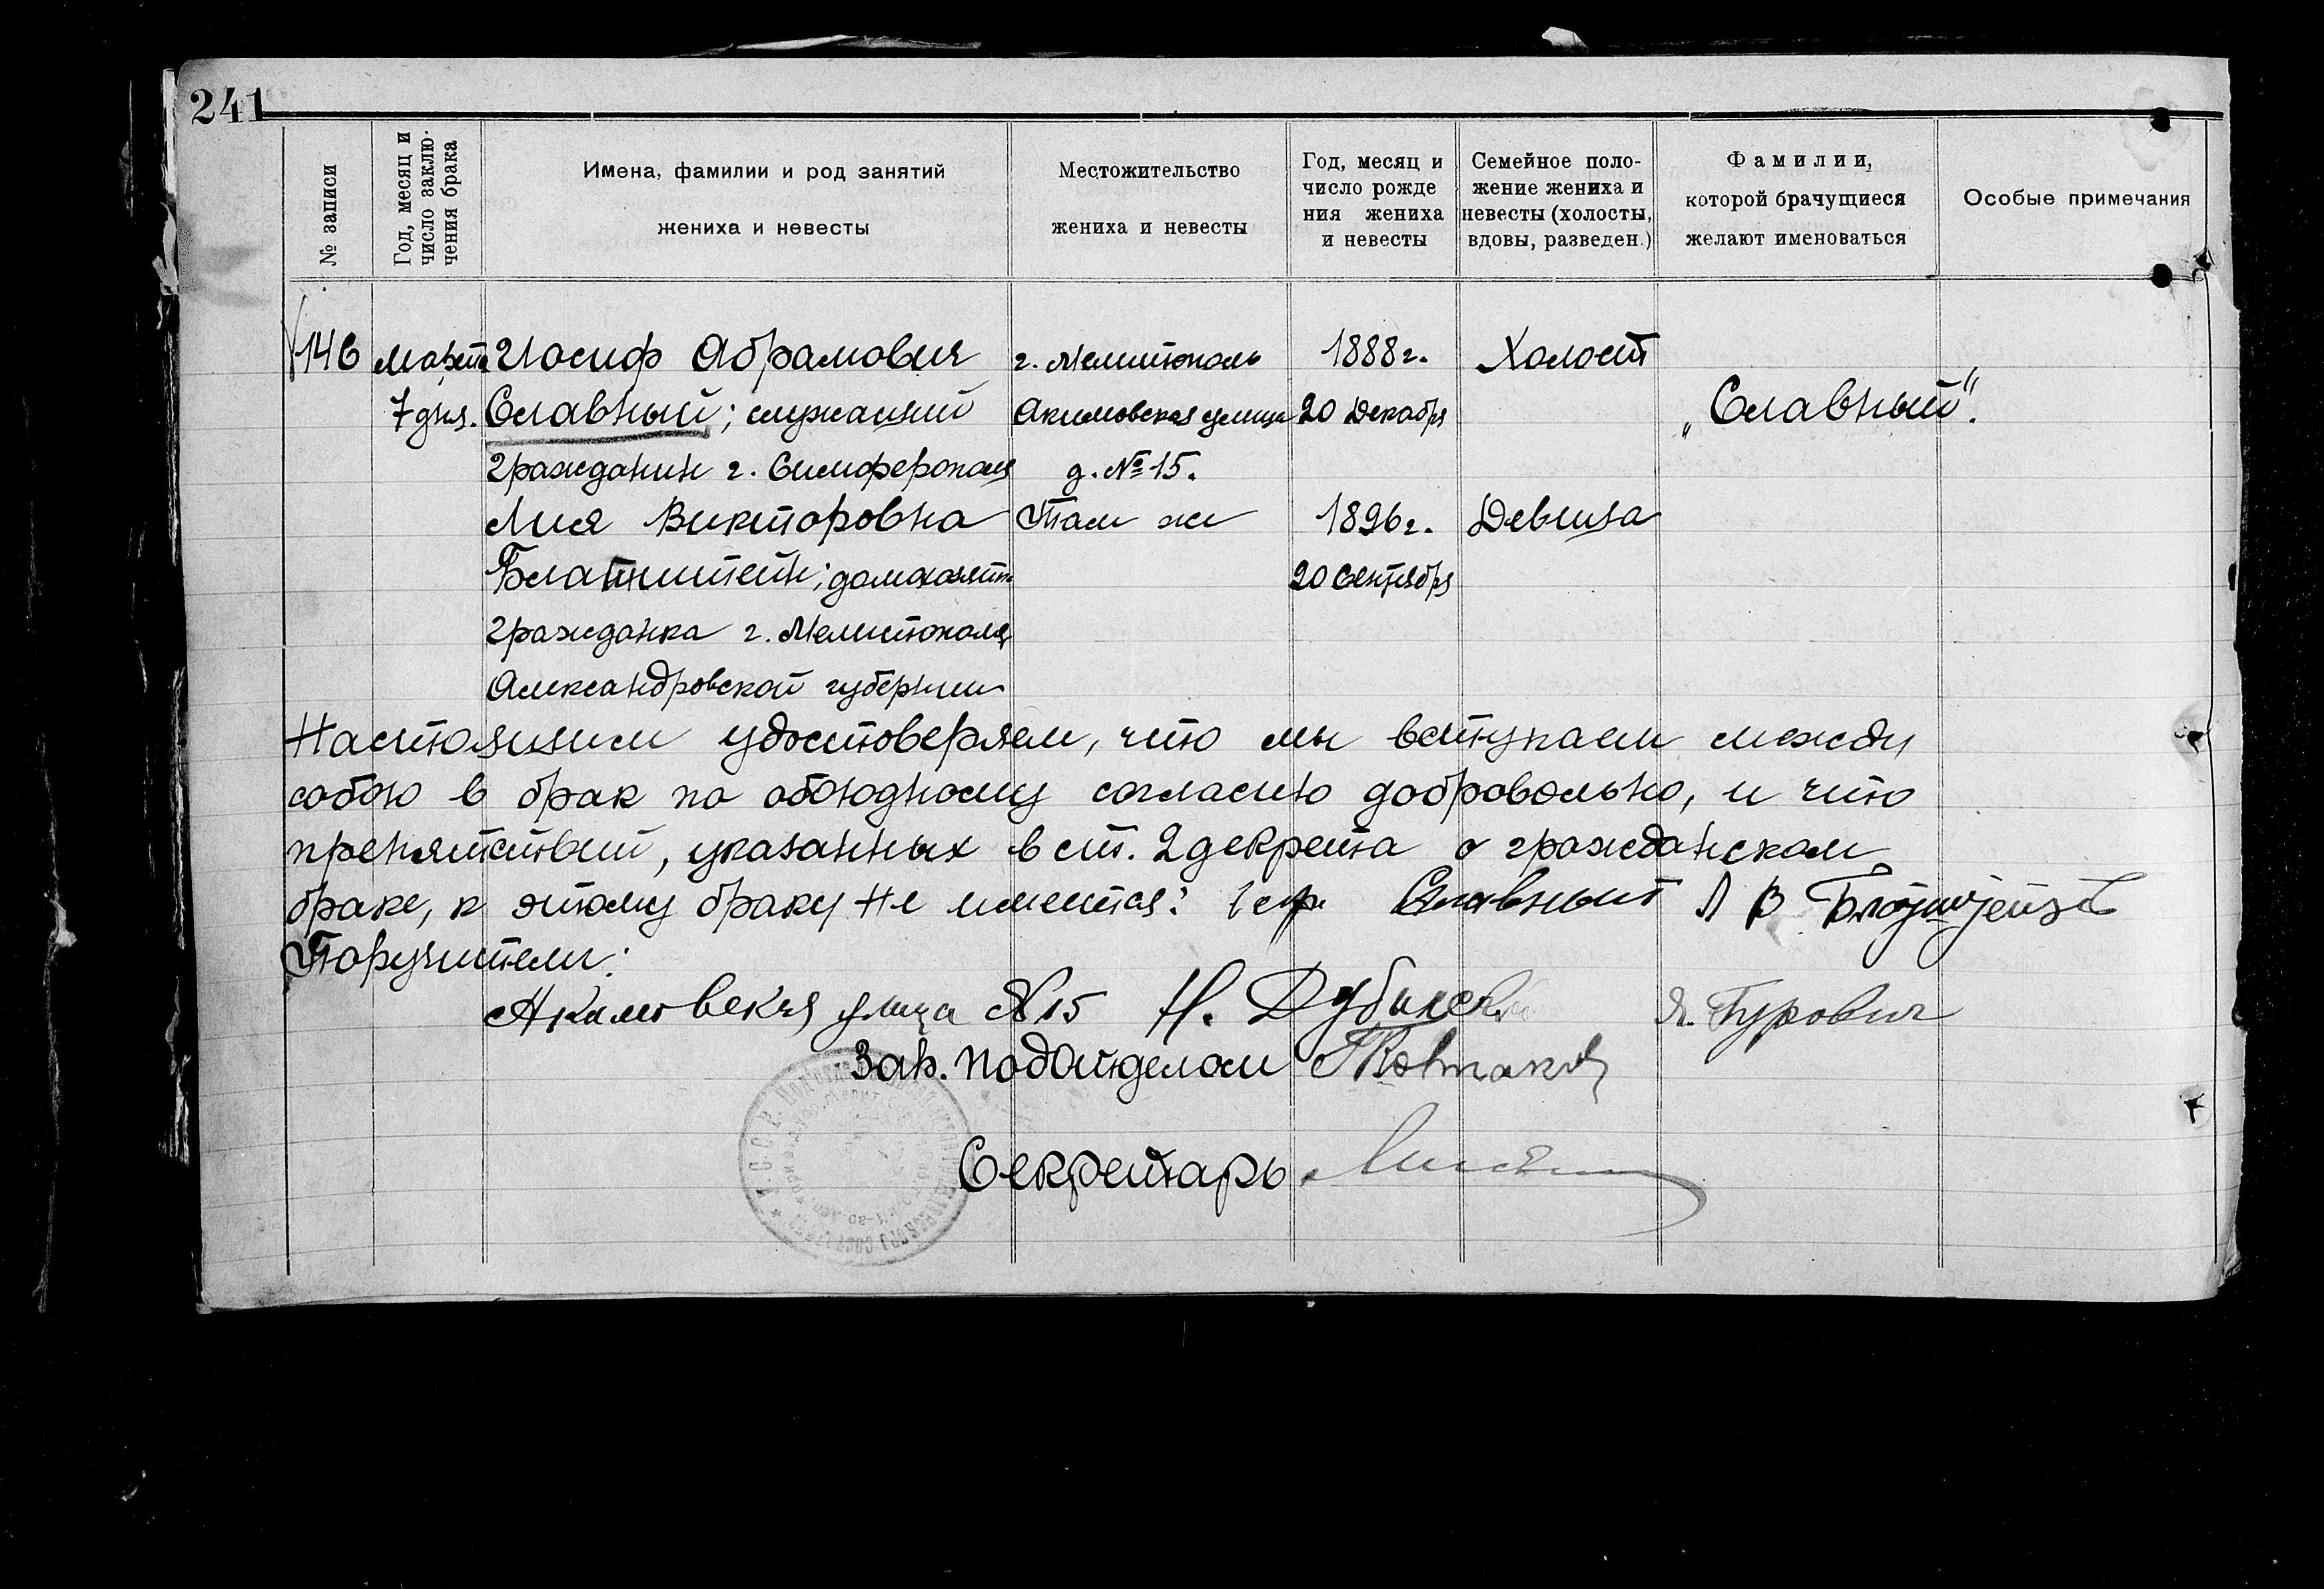 241
№ записи
Год, месяц и число заклю-чения брака
Имена, фамилии и род занятий
жениха и невесты
Местожительство
жениха и невесты
Год, месяц и
число рожде
ния жениха
и невесты
Семейное поло-
жение жениха и
невесты (холосты,
вдовы, разведен.)
Фамилии,
которой брачущиеся
желают именоваться
Особые примечания
146 Марта Иосиф Абрамович г. Мелитополь 1888 г. Холост
7 дня. Славный; служащий Акимовская улица 20 Декабря „Славный".
гражданин г. Симферополя д. № 15.
Лия Викторовна Там же 1896 г. Девица
Блатштейн; домохозяйка 20 Сентября
гражданка г. Мелитополя
Александровской губернии
Настоящим удостоверяем, что мы вступаем между
собою в брак по обоюдному согласию добровольно, и что
препятствий, указанных в ст. 2 декрета о гражданском
браке, к этому браку не имеется: Славный Л В
Поручители:
Акимовская улица № 15 Н. Я. Гурович
Зав. подотделом
Секретарь